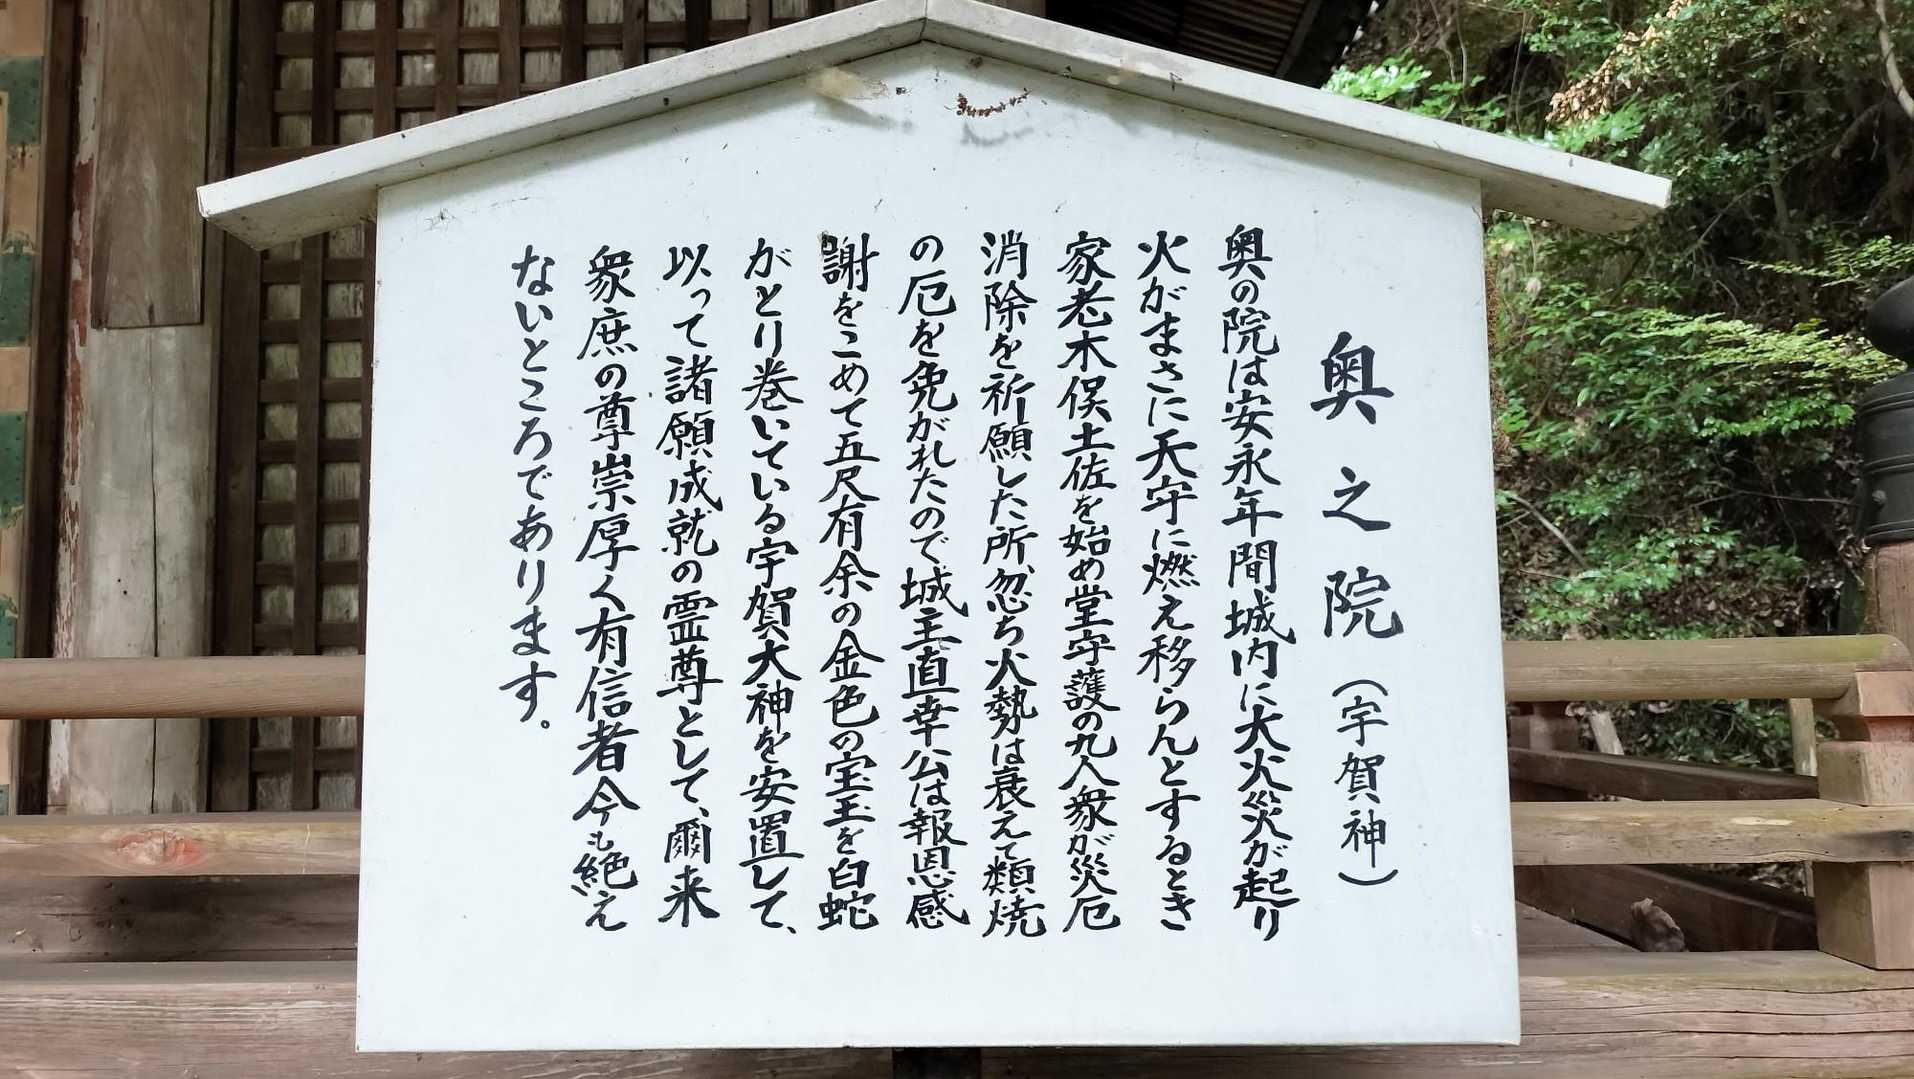 奥之院(宇賀神)
奥の院は安永年間城内に大火災が起り
火がまさに天守に燃え移らんとするとき
家老木俣土佐を始め堂守護の九人衆が災厄
消除を祈願した所、忽ち火勢は衰えて類焼
の厄を免がれたので城主直幸公は報恩感
謝をこめて五尺有余の金色の宝玉を白蛇
がとり巻いている宇賀大神を安置して、
以って諸願成就の霊尊として、爾来
衆庶の尊崇厚く有信者今も絶え
ないところであります。